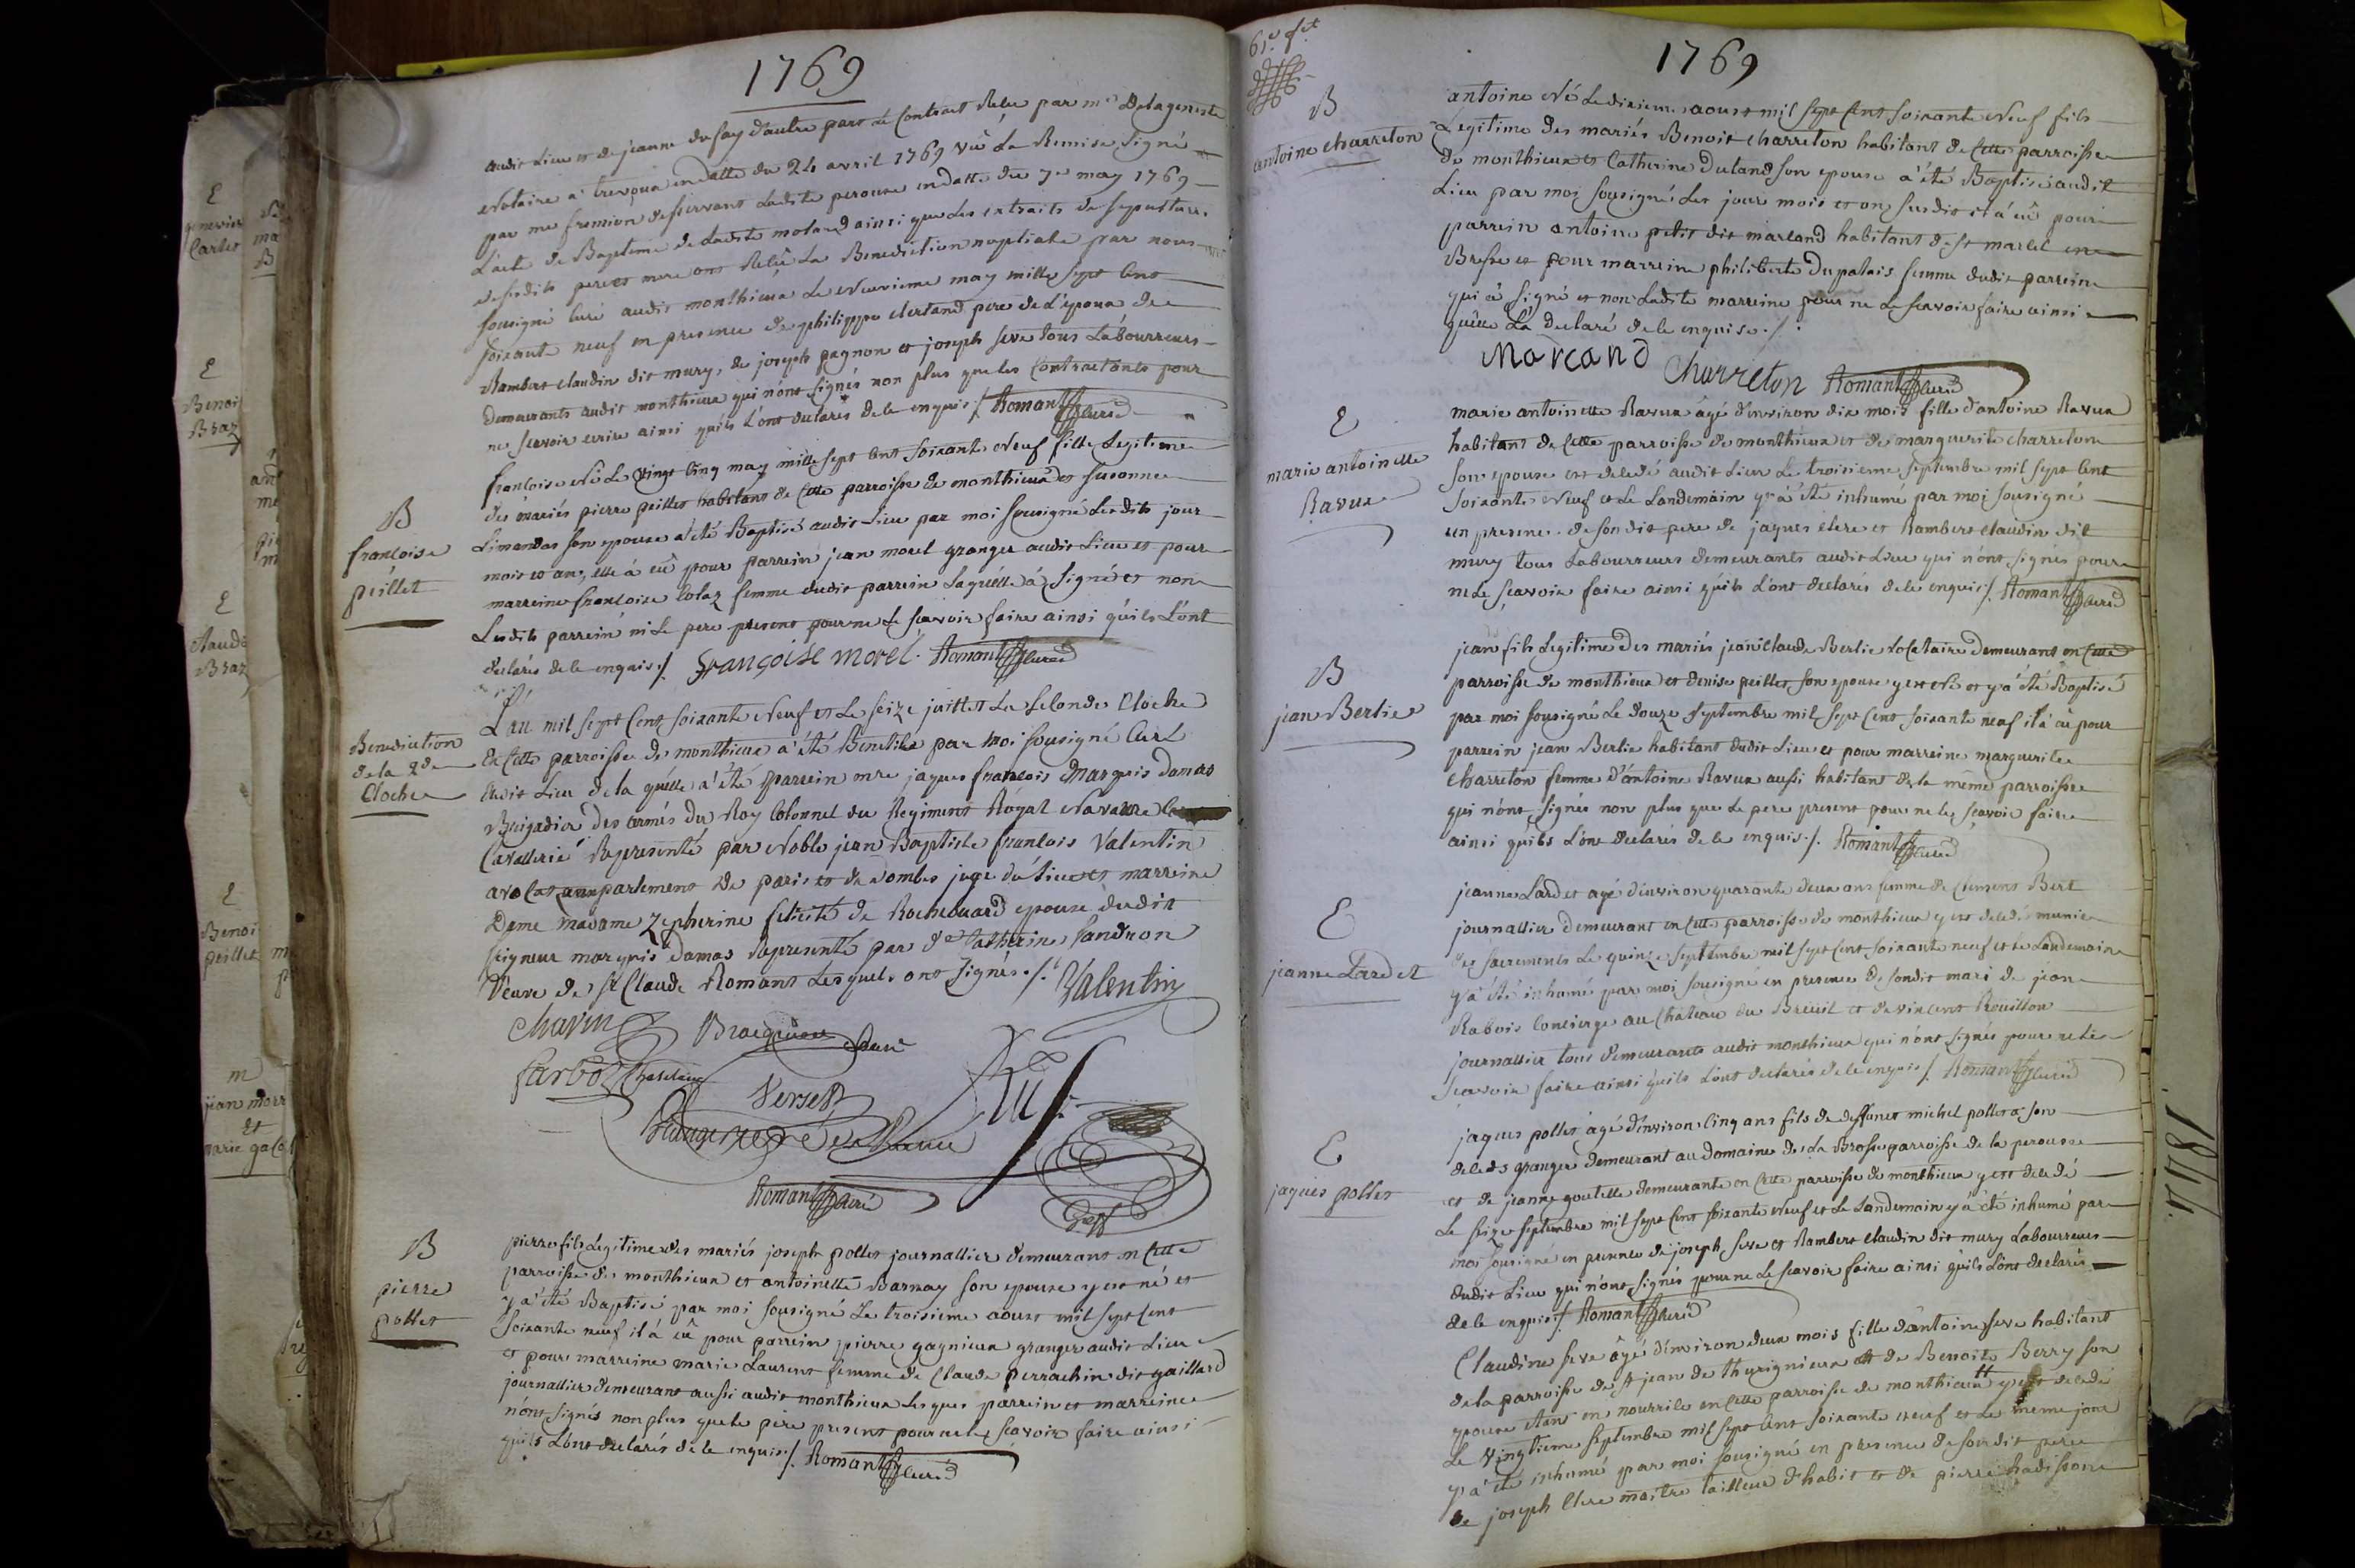 1769
audit Lieu et de jeanne dufay d'autre part le Contract Relu par me Delageneste
Notaire a trevoux en datte du 24 avril 1769 vû La Remise Signé
par me fremion desservant Ladite perouse en datte du 7e may 1769
L'acte de Baptême de Ladite moland ainsi que Les extraits de sepulture
desdits pere et mere ont Reçû La Benediction nuptiale par nous
sousigné Curé audit monthieux Le Neuvieme may mille sept Cent
soixante neuf en presence de philippe pere de L'epoux de
Rambert Claudin dit mury, de joseph pagnon et joseph seve tous Labourreurs
demeurants audit monthieux qui n'ont signés non plus que les Contractants pour
ne scavoir ecrire ainsi qu'ils L'ont declarés de le enquis ./. Romant Curé
B
francoise
peillet
francoise Né Le vingt Cinq may mille sept Cent Soixante Neuf fille Legitime
des mariés pierre peillet habitant de Cette parroisse de monthieux et susanne
Limandas son epouse a été Baptisé audit Lieu par moi sousigné Lesdits jour
mois et an, elle à eû pour parrein jean morel granger audit Lieu et pour
marreine francoise Colaz femme dudit parrein Laquelle à Signé et non
Lesdits parrein ni Le pere present pour ne Le scavoir faire ainsi qu'ils L'ont
declarés de le enquis ./. Françoise morel. Romant Curé
Benediction
de la 2de
Cloche
L'an mil sept Cent soixante Neuf et Le seize juillet La seconde Cloche
de Cette parroisse de monthieux a été Benitte par moi sousigné Curé
dudit Lieu de la quelle a été parrein mre jaques francois Marquis Damas
Brigadier des armés du Roy Colonnel du Regiment Royal Navarre
Cavallerie Representé par Noble jean Baptiste francois Valentin
avocat aux parlement de paris et de dombes juge du Lieu et marreine
Dame madame Zepherine felicité de Rochechouard epouse dudit
seigneur marquis Damas Representé par de Catherine Sandron
Veuve de sr Claude Romant Lesquels ont signés ./. Valentin
Chavin
Verset
Romant Curé
B
pierre
pollet
pierre fils Legitime des mariés joseph pollet journallier demeurant en Cette
parroisse de monthieux et antoinette Barnay son epouse y est né et
y a été Baptisé par moi sousigné Le troisieme aoust mil sept Cent
soixante neuf il à eû pour parrein pierre gagnieux granger audit Lieu
et pour marreine marie Laurent femme de Claude perrachin dit gaillard
journallier demeurant aussi audit monthieux Lesques parrein et marreine
n'ont signés non plus que le pere present pour ne le scavoir faire ainsi
qu'ils L'ont declarés de le enquis ./. Romant Curé
1769
B
antoine charreton
antoine Né Le dixieme aoust mil sept Cent soixante Neuf fils
Legitime des mariés Benoit charreton habitant de Cette parroisse
de monthieux et Catherine Duland son epouse a été Baptisé audit
Lieu par moi sousigné Les jour mois et an susdit il à eû pour
parrein antoine petit dit marcand habitant de st marcel en
Bresse et pour marreine philiberte Dupalais femme dudit parrein
qui à signé et non Ladite marreine pour ne Le scavoir faire ainsi
qu'elle L'a declaré de le enquise ./.
Marcand Charreton Romant Curé
E
marie antoinette
Ravux
marie antoinette Ravux âgé d'environ dix mois fille d'antoine Ravux
habitant de Cette parroisse de monthieux et de marguerite charreton
son epouse est decedé audit Lieu Le troisieme septembre mil sept Cent
soixante Neuf et Le Landemain y a été inhumé par moi sousigné
en presence de son dit pere de jaques Clere et Rambert Claudin dit
mury tous Labourreurs demeurants audit Lieu qui n'ont signés pour
ne Le sçavoir faire ainsi qu'ils L'ont declarés de le enquis ./. Romant Curé
B
jean Berlie
jean fils Legitime des mariés jean Claude Berlie Locataire demeurant en Cette
parroisse de monthieux et denise peillet son epouse y est né et y a été Baptisé
par moi sousigné Le douze septembre mil sept Cent soixante neuf il a eû pour
parrein jean Berlie habitant dudit Lieu et pour marreine marguerite
Charreton femme d'antoine Ravux aussi habitant de la même parroisse
qui n'ont signés non plus que Le pere present pour ne le sçavoir faire
ainsi qu'ils L'ont declarés de le enquis ./. Romant Curé
E
jeanne Lardet
jeanne Lardet agé d'environ quarante deux ans femme de Clement Bert
journallier demeurant en Cette parroisse de monthieux y est decedé munie
des sacrements Le quinze septembre mil sept cent soixante neuf et Le Landemain
y a été inhumé par moi sousigné en presence de sondit mari de jean
Rabois Concierge au Château du Breuil et de vincent Rouillon
journallier tous demeurants audit monthieux qui n'ont signés pour ne Le
scavoir faire ainsi qu'ils L'ont declarés de le enquis ./. Romant Curé
E
jaques pollet
jaques pollet agé d'environ Cinq ans fils de deffunct michel pollet à son
deceds granger demeurant au domaine de La Brosse parroisse de la perouse
et de jeanne goutelle demeurante en Cette parroisse de monthieux y est decedé
Le seize septembre mil sept Cent soixante Neuf et Le Landemain y à été inhumé par
moi sousigné en presence de joseph seve et Rambert Claudin dit mury Labourreurs
dudit Lieu qui n'ont signés pour ne Le scavoir faire ainsi qu'ils L'ont declarés
de le enquis ./. Romant Curé
Claudine seve âgé d'environ deux mois fille d'antoine seve habitant
de la parroisse de st jean de thurignieux et de Benoite Berry son
epouse etant en nourrice en Cette parroisse de monthieux y est decedé
Le vingtieme septembre mil sept Cent soixante neuf et Le même jour
y a été inhumé par moi sousigné en presence de son dit pere
de joseph Clere maitre tailleur d'habit et de pierre
1844